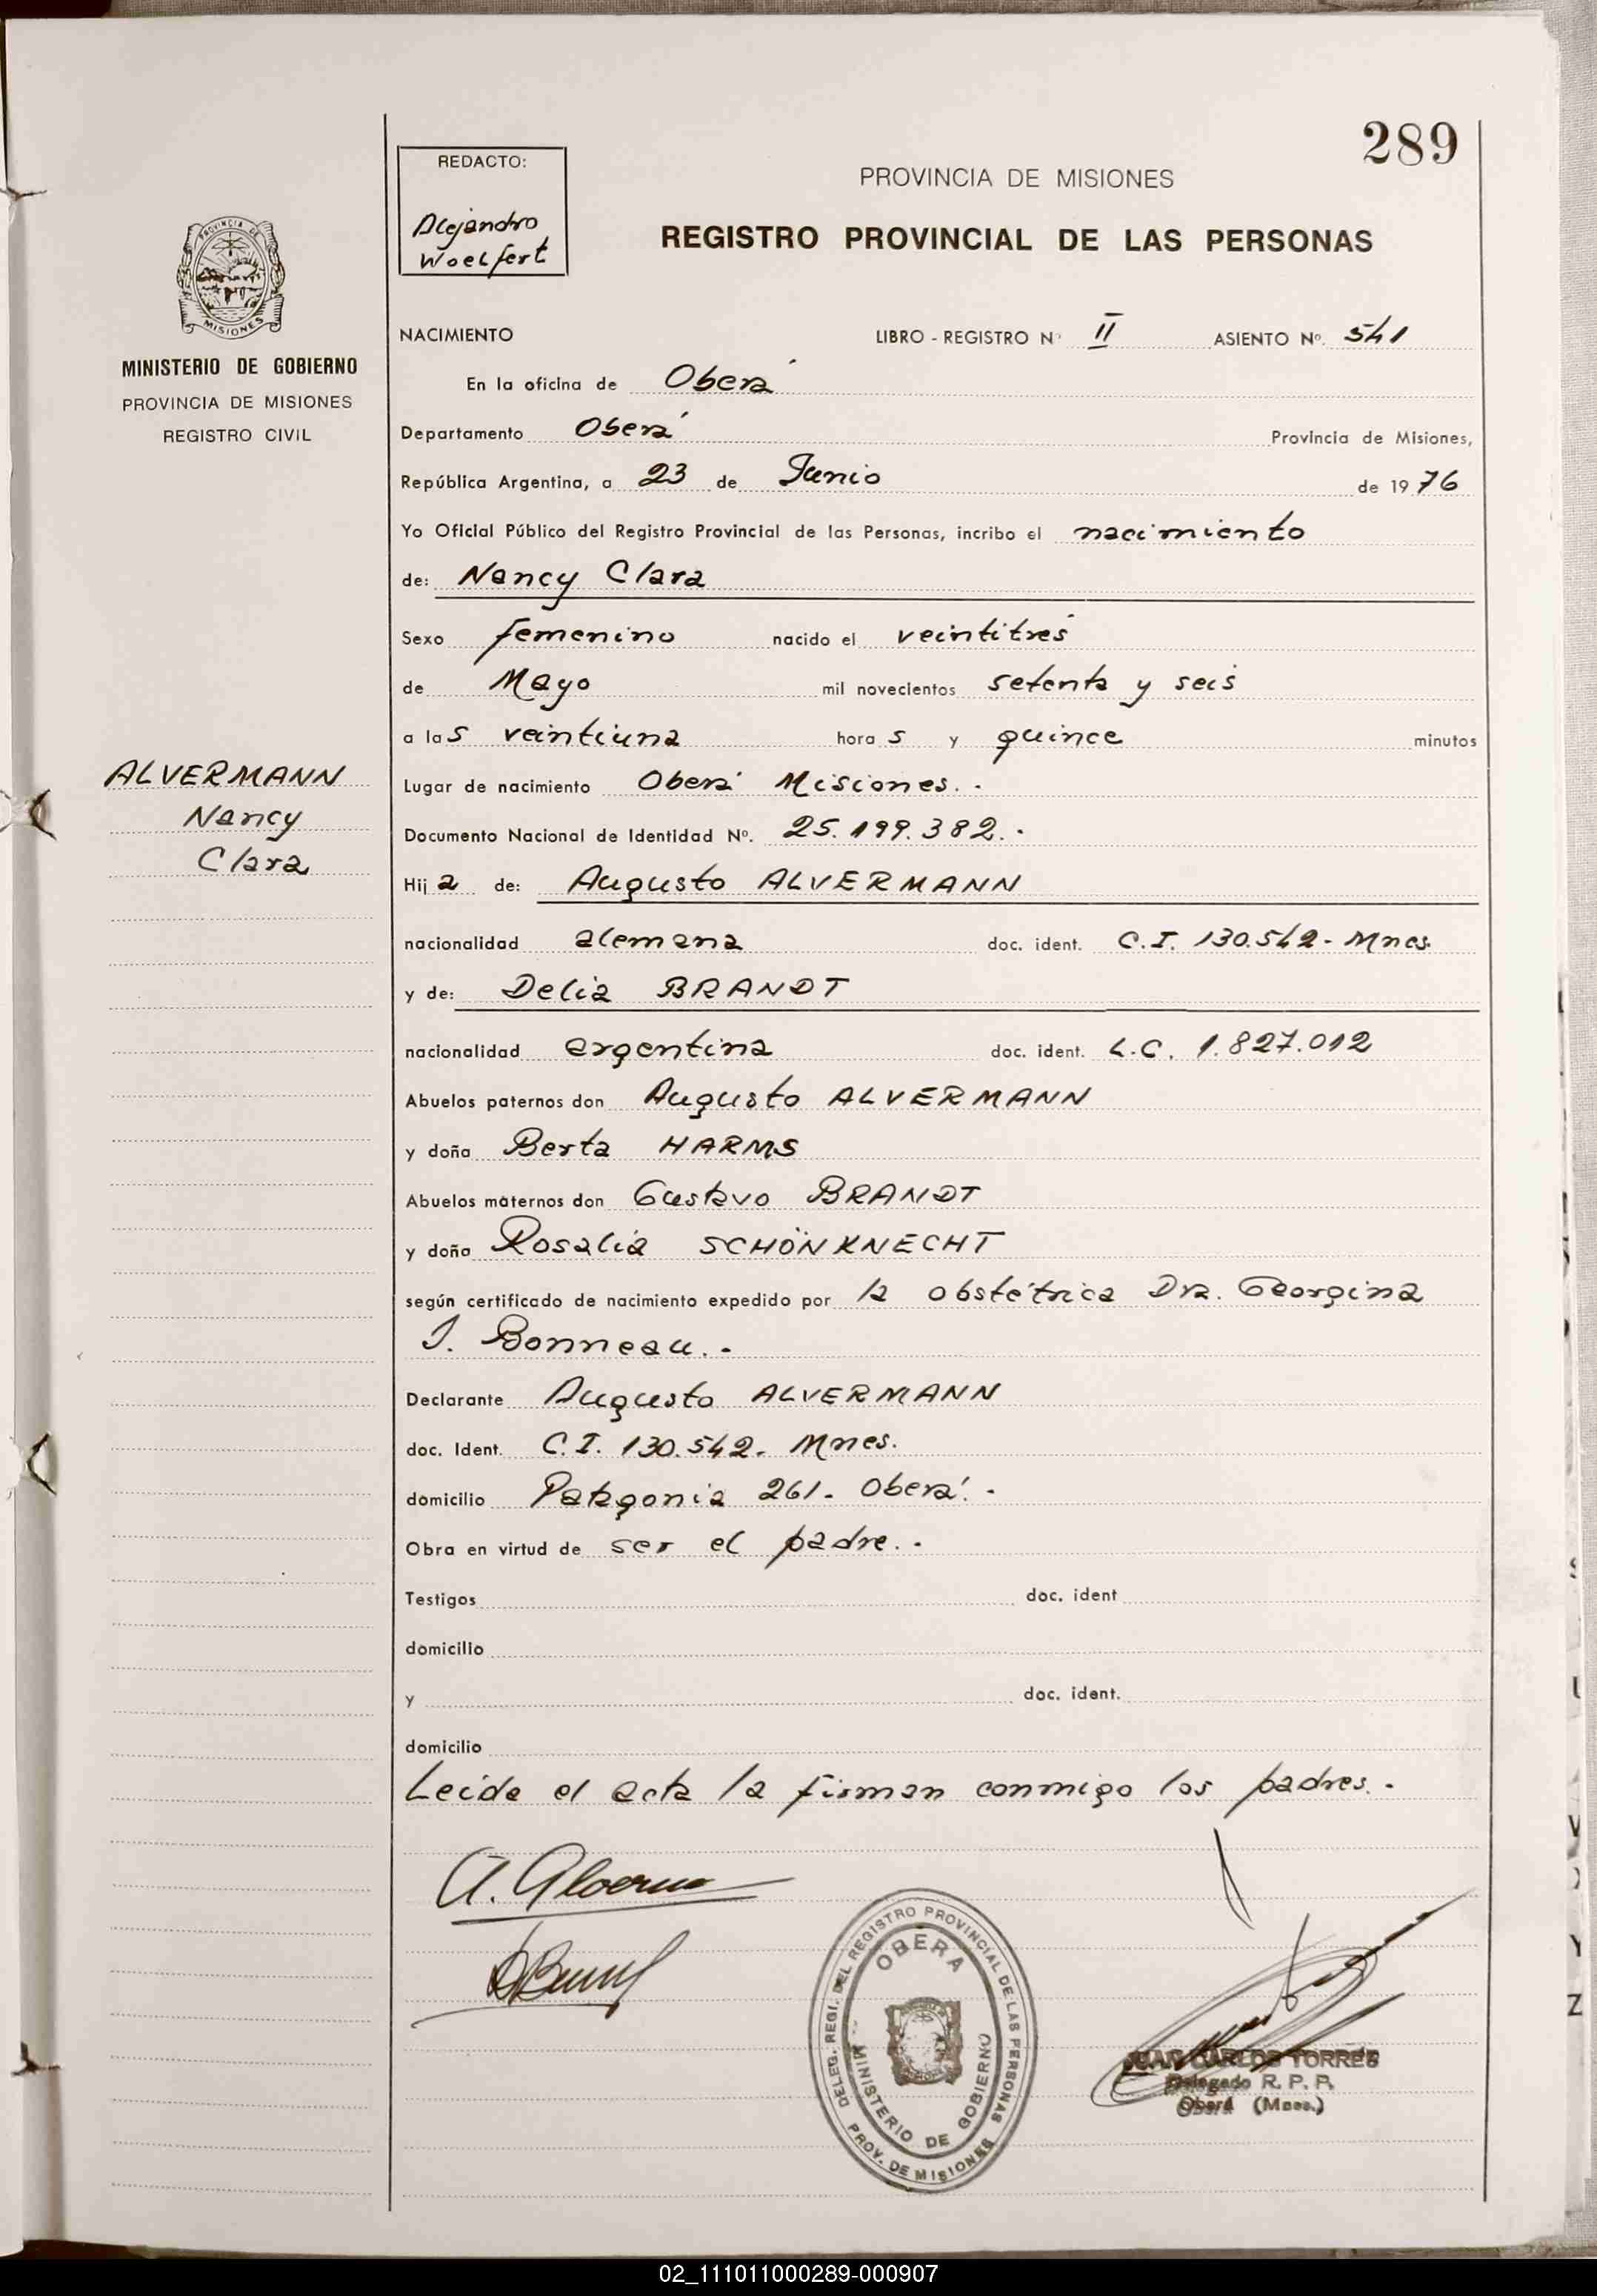 289
REDACTO:
Alejandro
Woelfert
PROVINCIA DE MISIONES
REGISTRO PROVINCIAL DE LAS PERSONAS
PROVINCIA DE
MISIONES
MINISTERIO DE GOBIERNO
PROVINCIA DE MISIONES
REGISTRO CIVIL
NACIMIENTO LIBRO - REGISTRO Nº II ASIENTO Nº. 541
En la oficina de Oberá
Departamento Oberá Provincia de Misiones,
República Argentina, a 23 de Junio de 1976
Yo Oficial Público del Registro Provincial de las Personas, incribo el nacimiento
de: Nancy Clara
Sexo femenino nacido el veintitrés
de Mayo mil novecientos setenta y seis
a las veintiuna horas y quince minutos
ALVERMANN
Nancy
Clara
Lugar de nacimiento Oberá Misiones.-
Documento Nacional de Identidad Nº. 25.199.382.-
Hija de: Augusto ALVERMANN
nacionalidad alemana doc. ident. C.I. 130.542- Mnes.
y de: Delia BRANDT
nacionalidad argentina doc. ident. L.C. 1.827.012
Abuelos paternos don Augusto ALVERMANN
y doña Berta HARMS
Abuelos maternos don Gustavo BRANDT
y doña Rosalia SCHÖNKNECHT
según certificado de nacimiento expedido por la obstétrica Dra. Georgina
J. Bonneau.-
Declarante Augusto ALVERMANN
doc. Ident. C.I. 130.542. Mnes.
domicilio Patagonia 261. Oberá.-
Obra en virtud de ser el padre.-
Testigos doc. ident
domicilio
y doc. ident.
domicilio
Leída el acta la firman conmigo los padres.-
DELEG. REGI. DEL REGISTRO PROVINCIAL DE LAS PERSONAS
PROV. DE MISIONES
OBERA
MINISTERIO DE GOBIERNO
JUAN CARLOS TORRES
Delegado R. P. P.
Oberá (Mnes.)
02_111011000289-000907